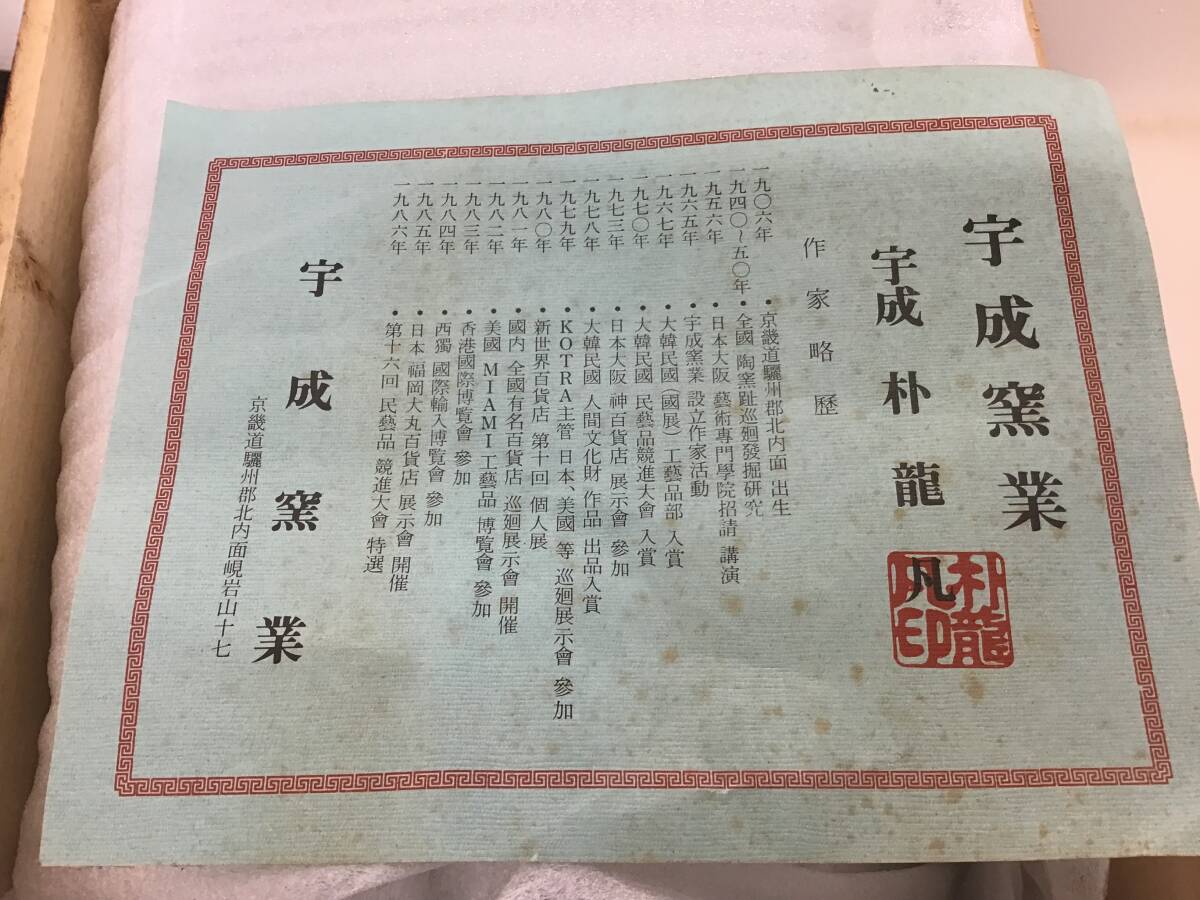 宇成窯業
宇成 朴龍凡
朴龍凡印
作家略歷
一九〇六年 • 京畿道驪州郡北內面 出生
一九四〇~五〇年 • 全國 陶窯趾巡廻發掘研究
一九五六年 • 日本大阪 藝術專門學院招請 講演
一九六五年 • 宇成窯業 設立作家活動
一九六七年 • 大韓民國(國展)工藝品部 入賞
一九七〇年 • 大韓民國 民藝品競進大會 入賞
一九七三年 • 日本大阪 神百貨店 展示會 參加
一九七八年 • 大韓民國 人間文化財 作品 出品入賞
一九七九年 • KOTRA主管 日本、美國 等 巡廻展示會 參加
一九八〇年 • 新世界百貨店 第十回 個人展
一九八一年 • 國內 全國有名百貨店 巡廻展示會 開催
一九八二年 • 美國 MIAMI工藝品 博覽會 參加
一九八三年 • 香港國際博覽會 參加
一九八四年 • 西獨 國際輸入博覽會 參加
一九八五年 • 日本 福岡大丸百貨店 展示會 開催
一九八六年 • 第十六回 民藝品 競進大會 特選
宇成窯業
京畿道驪州郡北內面峴岩山十七